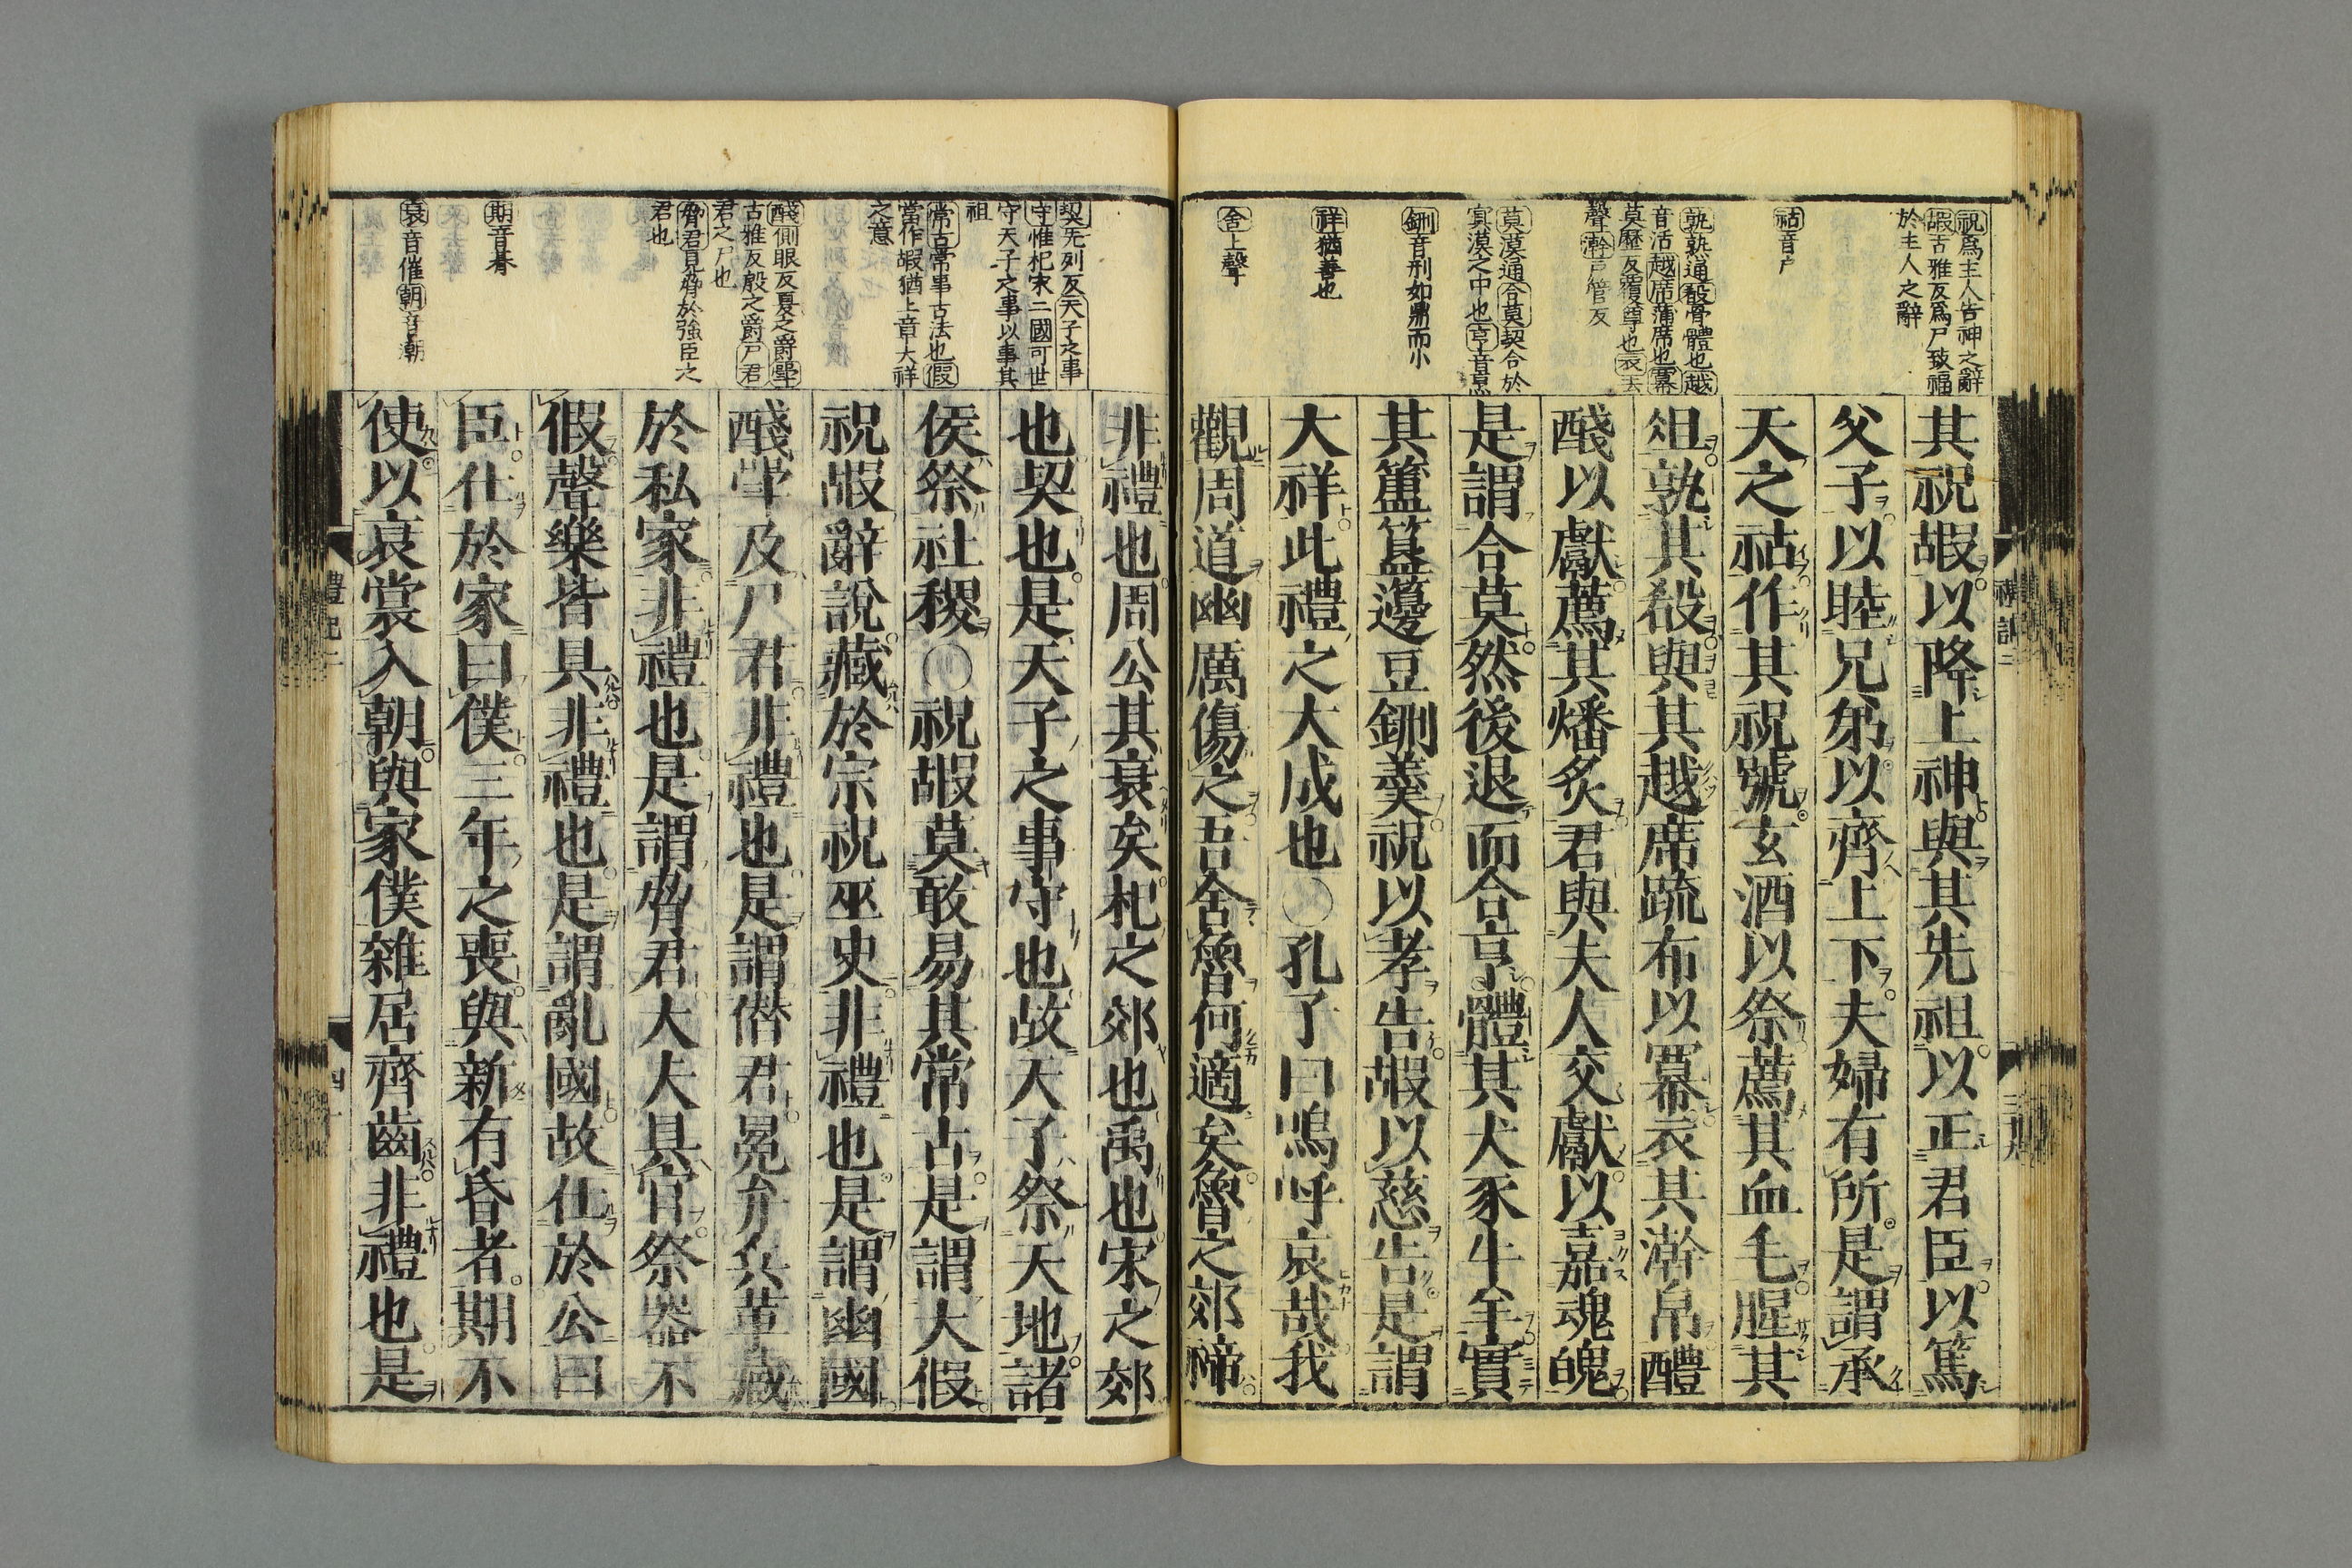 祝爲主人告神之辭
嘏古雅反爲尸致福
於主人之辭
祜音戶
孰熟通殽骨體也越
音活越席蒲席也冪
莫歷反覆尊也衣去
聲澣戶管反
莫漠通合莫契合於
冥漠之中也亨音烹
鉶音刑如鼎而小
祥猶善也
舍上聲
其祝嘏以降上神與其先祖以正君臣以篤
父子以睦兄弟以齊上下夫婦有所是謂承
天之祜作其祝號玄酒以祭薦其血毛腥其
俎孰其殽與其越席疏布以冪衣其澣帛醴
醆以獻薦其燔炙君與夫人交獻以嘉魂魄
是謂合莫然後退而合亨體其犬豕牛羊實
其簠簋籩豆鉶羹祝以孝告嘏以慈告是謂
大祥此禮之大成也〇孔子曰嗚呼哀哉我
觀周道幽厲傷之吾舍魯何適矣魯之郊禘
契先列反天子之事
守惟杞宋二國可世
守天子之事以事其
祖
常古常事古法也假
當作嘏猶上章大祥
之意
醆側眼反夏之爵斝
古雅反殷之爵尸君
君之尸也
脅君見脅於強臣之
君也
期音朞
衰音催朝音潮
非禮也周公其衰矣杞之郊也禹也宋之郊
也契也是天子之事守也故天子祭天地諸
侯祭社稷〇祝嘏莫敢易其常古是謂大假
祝嘏辭說藏於宗祝巫史非禮也是謂幽國
醆斝及尸君非禮也是謂僭君冕弁兵革藏
於私家非禮也是謂脅君大夫具官祭器不
假聲樂皆具非禮也是謂亂國故仕於公曰
臣仕於家曰僕三年之喪與新有昏者期不
使以衰裳入朝與家僕雜居齊齒非禮也是
禮記二
四